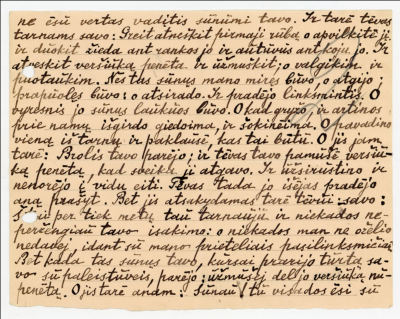 ne esu vertas vaditis sunumi tavo. Ir tarė tėvas
tarnams savo: Greit atneškit pirmąjį rūbą, o apvilkitė jį,
ir duokit žiedą ant rankos jo ir autuvus ant kojų jo. Ir
atveskit veršiuką penėtą ir užmuškit; o valgikim ir
puotaukim. Nes tas sunus mano miręs buvo, o atgijo;
prapuolęs buvo: o atsirado. Ir pradėjo linksmintis. O
vyresnis jo sunus laukuos buvo. O kad gryžo, ir artinos
prie namų išgirdo giedoimą, ir šokineimą. O pavadino
vieną iš tarnų ir paklausė, kas tai butu. O jis jam
tarė: Brolis tavo parėjo; ir tėvas tavo pamušė veršiu-
ką penėtą, kad sveiką jį atgavo. Ir užsirustino ir
nenorėjo į vidų eiti. Tėvas tada jo išėjęs pradėjo
aną prašyt. Bet jis atsakydamas tarė tėvui savo:
per tiek metų tau tarnauju ir niekados ne-
peržengiau tavo isakimo: o niekados man ne ožėlio
nedavėj, idant su mano prieteliais pasilinksmičiau
Bet kada tas sunus tavo, kursai prarijo turtą sa-
vo su paleistuvėis, parėjo; užmušėj dėl jo veršiuką nu-
penėtą. O jis tarė anam: Sunau! tu visados esi su